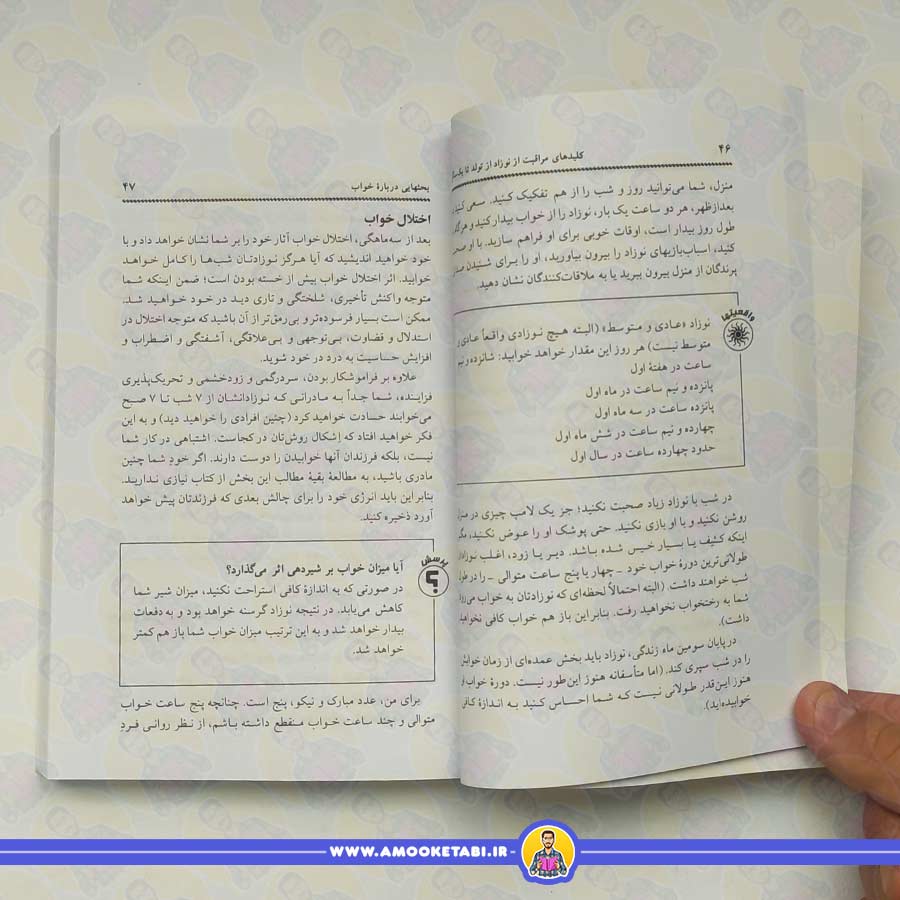 ۴۶
کلیدهای مراقبت از نوزاد از تولد تا یک
منزل، شما می‌توانید روز و شب را از هم تفکیک کنید. سعی کنید
بعدازظهر، هر دو ساعت یک بار، نوزاد را از خواب بیدار کنید و هر گاه
طول روز بیدار است، اوقات خوبی برای او فراهم سازید. با او
کنید، اسباب‌بازیهای نوزاد را بیرون بیاورید، او را برای شنیدن
پرندگان از منزل بیرون ببرید یا به ملاقات‌کنندگان نشان دهید.
واقعیتها
نوزاد «عادی و متوسط» (البته هیچ نوزادی واقعاً عادی
متوسط نیست) هر روز این مقدار خواهد خوابید: شانزده و نیم
ساعت در هفتهٔ اول
پانزده و نیم ساعت در ماه اول
پانزده ساعت در سه ماه اول
چهارده و نیم ساعت در شش ماه اول
حدود چهارده ساعت در سال اول
در شب با نوزاد زیاد صحبت نکنید؛ جز یک لامپ چیزی در
روشن نکنید و با او بازی نکنید. حتی پوشک او را عوض نکنید،
اینکه کثیف یا بسیار خیس شده باشد. دیر یا زود، اغلب
طولانی‌ترین دورهٔ خواب خود – چهار یا پنج ساعت متوالی – را در
شب خواهند داشت. (البته احتمالاً لحظه‌ای که نوزادتان به خواب
شما به رختخواب نخواهید رفت. بنابراین باز هم خواب کافی
داشت).
در پایان سومین ماه زندگی، نوزاد باید بخش عمده‌ای از زمان
را در شب سپری کند. (اما متأسفانه هنوز این‌طور نیست. دورهٔ خواب
هنوز این‌قدر طولانی نیست که شما احساس کنید به اندازهٔ
خوابیده‌اید).
بحثهایی دربارهٔ خواب
۴۷
اختلال خواب
بعد از سه‌ماهگی، اختلال خواب آثار خود را بر شما نشان خواهد داد و با
خود خواهید اندیشید که آیا هرگز نوزادتان شب‌ها را کامل خواهد
خوابید. اثر اختلال خواب بیش از خسته بودن است؛ ضمن اینکه شما
متوجه واکنش تأخیری، شلختگی و تاری دید در خود خواهید شد.
ممکن است بسیار فرسوده‌تر و بی‌رمق‌تر از آن باشید که متوجه اختلال در
استدلال و قضاوت، بی‌توجهی و بی‌علاقگی، آشفتگی و اضطراب و
افزایش حساسیت به درد در خود شوید.
علاوه بر فراموشکار بودن، سردرگمی و زودخشمی و تحریک‌پذیری
فزاینده، شما جداً به مادرانی که نوزادانشان از ۷ شب تا ۷ صبح
می‌خوابند حسادت خواهید کرد (چنین افرادی را خواهید دید) و به این
فکر خواهید افتاد که اِشکال روش‌تان در کجاست. اشتباهی در کار شما
نیست، بلکه فرزندان آنها خوابیدن را دوست دارند. اگر خودِ شما چنین
مادری باشید، به مطالعهٔ بقیهٔ مطالب این بخش از کتاب نیازی ندارید.
بنابراین باید انرژی خود را برای چالش بعدی که فرزندتان پیش خواهد
آورد ذخیره کنید.
پرسش
؟
آیا میزان خواب بر شیردهی اثر می‌گذارد؟
در صورتی که به اندازهٔ کافی استراحت نکنید، میزان شیر شما
کاهش می‌یابد. در نتیجه نوزاد گرسنه خواهد بود و به دفعات
بیدار خواهد شد و به این ترتیب میزان خواب شما باز هم کمتر
خواهد شد.
برای من، عدد مبارک و نیکو، پنج است. چنانچه پنج ساعت خواب
متوالی و چند ساعت خواب منقطع داشته باشم، از نظر روانی فردِ
WWW.AMOOKETABI.IR